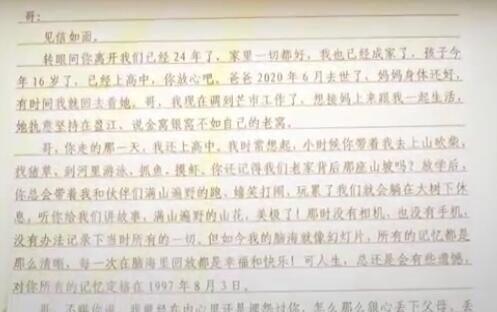 哥:
见信如面。
转眼间你离开我们已经24年了，家里一切都好，我也已经成家了，孩子今
年16岁了，已经上高中，你放心吧。爸爸2020年6月去世了，妈妈身体还好，
有时间我就回去看她。哥，我现在调到芒市工作了，想接妈上来跟我一起生活，
她执意坚持在盈江，说金窝银窝不如自己的老窝。
哥，你走的那一天，我还上高中，我时常想起，小时候你带着我去上山砍柴，
找猪草，到河里游泳，抓鱼、摸虾。你还记得我们老家背后那座山坡吗？放学后，
你总会带着我和伙伴们满山遍野的跑、嬉笑打闹，玩累了我们就会躺在大树下休
息，听你给我们讲故事，满山遍野的山花，美极了！那时没有相机，也没有手机，
没有办法记录下当时所有的一切，但如今我的脑海就像幻灯片，所有的记忆都是
那么清晰，每一次在脑海里回放都是幸福和快乐！可人生，总还是会有些遗憾，
对你所有的记忆定格在1997年8月3日。
哥，不瞒你说，我曾经在内心里还是埋怨过你，怎么那么狠心丢下父母，丢